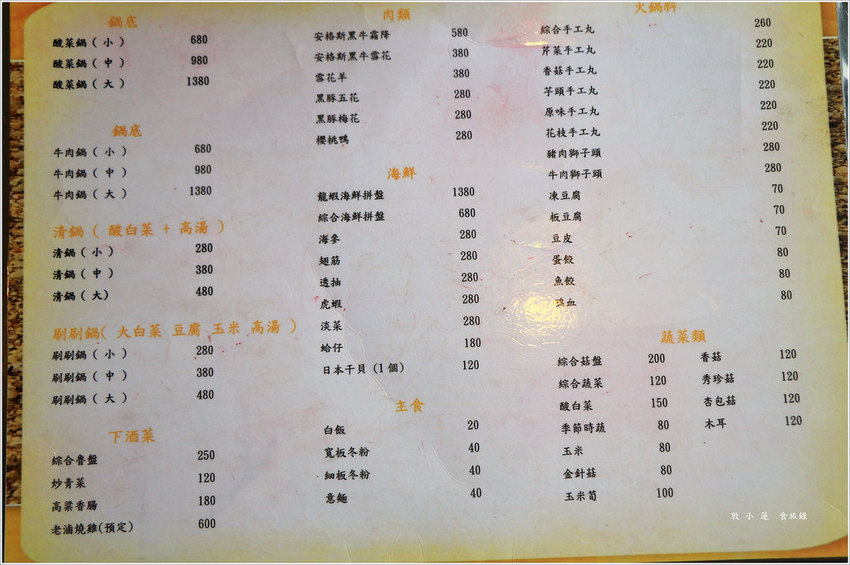 鍋底
酸菜鍋(小) 680
酸菜鍋(中) 980
酸菜鍋(大) 1380
鍋底
牛肉鍋(小) 680
牛肉鍋(中) 980
牛肉鍋(大) 1380
清鍋(酸白菜+高湯)
清鍋(小) 280
清鍋(中) 380
清鍋(大) 480
刷刷鍋(大白菜 豆腐 玉米 高湯)
刷刷鍋(小) 280
刷刷鍋(中) 380
刷刷鍋(大) 480
下酒菜
綜合魯盤 250
炒青菜 120
高粱香腸 180
老滷燒雞(預定) 600
肉類
安格斯黑牛霜降 580
安格斯黑牛雪花 380
雪花羊 380
黑豚五花 280
黑豚梅花 280
櫻桃鴨 280
海鮮
龍蝦海鮮拼盤 1380
綜合海鮮拼盤 680
海參 280
翅筋 280
透抽 280
虎蝦 280
淡菜 280
蛤仔 180
日本干貝(1個) 120
主食
白飯 20
寬板冬粉 40
細板冬粉 40
意麵 40
火鍋料
綜合手工丸 260
芹菜手工丸 220
香菇手工丸 220
芋頭手工丸 220
原味手工丸 220
花枝手工丸 220
豬肉獅子頭 280
牛肉獅子頭 280
凍豆腐 70
板豆腐 70
豆皮 70
蛋餃 80
魚餃 80
血 80
蔬菜類
綜合菇盤 200 香菇 120
綜合蔬菜 120 秀珍菇 120
酸白菜 150 杏包菇 120
季節時蔬 80 木耳 120
玉米 80
金針菇 80
玉米筍 100
敦小蓮 食旅錄